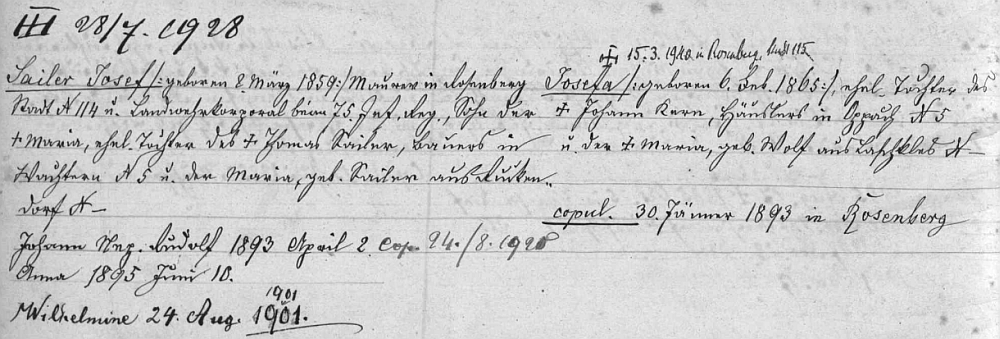 28/7. 1928
Sailer Josef /: geboren 2. März 1859 :/ Maurer in Rosenberg
Stadt N 114 u. Landwehrkorporal beim 75. Inf. Reg., Sohn der
+ Maria, ehel. Tochter des + Thomas Sailer, Bauers in
Wachtern N 5 u. der Maria, geb. Sailer aus Ruken„
dorf N –
Johann Nep. Rudolf 1893 April 2. Cop. 24./8. 1920
Anna 1895 Juni 10.
1901
Wilhelmine 24. Aug. 1901.
15.3.1940 in Rosenberg, Stadt 115
Josefa /: geboren 6. Feb. 1865 :/, ehel. Tochter des
+ Johann Kern, Häuslers in Oppach N 5
u. der + Maria, geb. Wolf aus N –
copul. 30. Jänner 1893 in Rosenberg